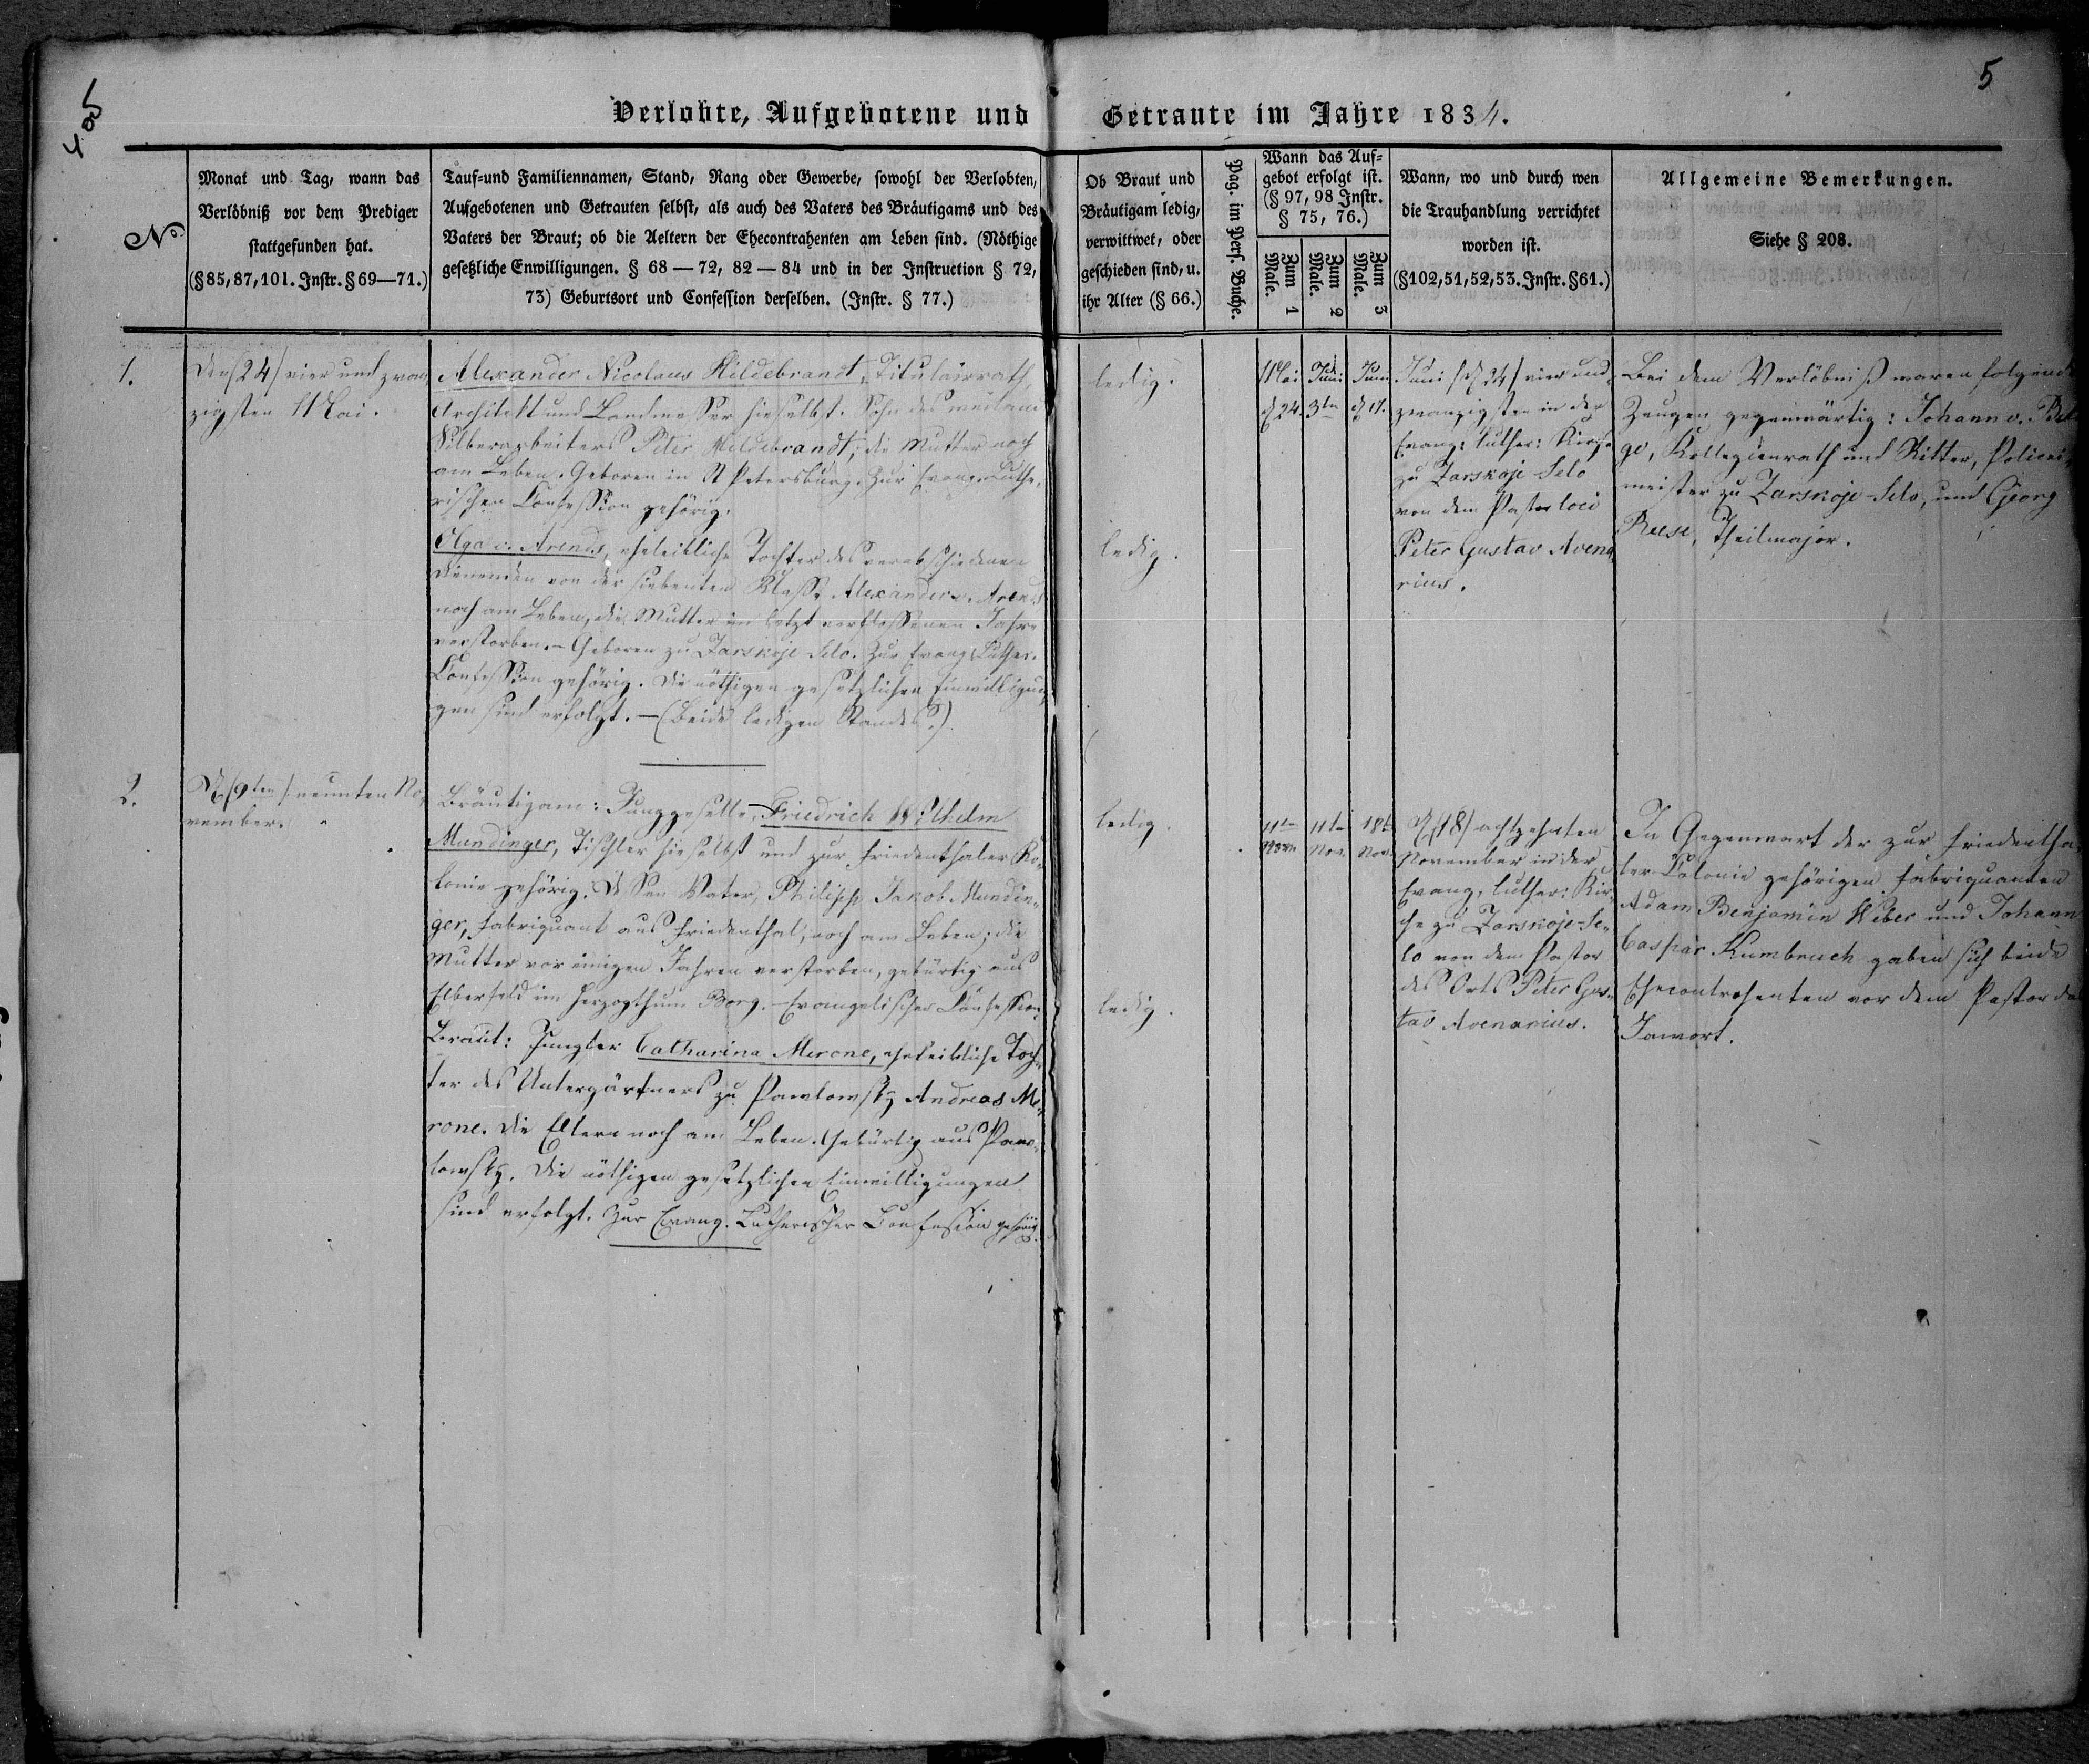 5
5
Verlobte, Aufgebotene und Getraute im Jahre 1834.
No
Monat und Tag, wann das
Verlöbniß vor dem Prediger
stattgefunden hat.
(§85, 87, 101. Instr. §69—71.)
Tauf-und Familiennamen, Stand, Rang oder Gewerbe, sowohl der Verlobten,
Aufgebotenen und Getrauten selbst, als auch des Vaters des Bräutigams und des
Vaters der Braut; ob die Aeltern der Ehecontrahenten am Leben sind. (Nöthige
gesetzliche Enwilligungen. § 68 — 72, 82 — 84 und in der Instruction § 72,
73) Geburtsort und Confession derselben. (Instr. § 77.)
Ob Braut und
Bräutigam ledig,
verwittwet, oder
geschieden sind, u.
ihr Alter (§ 66.)
Pag. im Pers. Buche.
Wann das Auf-
gebot erfolgt ist.
(§ 97, 98 Instr.
§ 75, 76.)
Zum 1
Male.
Zum 2
Male.
Zum 3
Male.
Wann, wo und durch wen
die Trauhandlung verrichtet
worden ist.
(§102, 51, 52, 53. Instr. §61.)
Allgemeine Bemerkungen.
Siehe § 208.
1.
Den (24) vier und zwan
zigsten Mai.
Alexander Nicolaus Hildebrandt, Titulairrath,
Architekt und Landmesser hieselbst. Sohn des weiland
Silberarbeiters Peter Hildebrandt, die Mutter noch
am Leben. Geboren in St Petersburg. Zur Evang. Luthe-
rischen Confession gehörig.
Olga v. Arends, eheleibliche Tochter des verabschiedenen
Dienenden von der siebenten Klasse Alexander v. Arends
noch am Leben, die Mutter im letzt verflossenen Jahre
verstorben. – Geboren zu Zarskoje-Selo. Zur Evang. Luther.
Confession gehörig. Die nöthigen gesetzlichen Einwilligun-
gen sind erfolgt. — (Beide ledigen Standes.)
ledig.
ledig.
Mai
d 24.
Juni
3ten
Juni
d 17.
Juni (d 24) vier und
zwanzigsten in der
Evang: Luther: Kirche
zu Zarskoje-Selo
von dem Pastor loci
Peter Gustav Avena-
rius.
Bei dem Verlöbniß waren folgende
Zeugen gegenwärtig: Johann v.
ge, Kollegienrath und Ritter, Policei-
meister zu Zarskoje-Selo, und Georg
Reese, Theilmajor.
2.
D (9ten) neunten No-
vember.
Bräutigam: Junggeselle, Friedrich Wilhelm
Mundinger, Tischler hieselbst und zur Friedenthaler Ko-
lonie gehörig. Dessen Vater, Philipp Jakob Mundin-
ger, Fabriquant aus Friedenthal, noch am Leben; die
Mutter vor einigen Jahren verstorben, gebürtig aus
Elberfeld im Herzogthum Berg. – Evangelischer Confession.
Braut: Jungfer Catharina Merone, eheleibliche Toch-
ter des Untergärtners zu Pawlowsky Andreas Me-
rone. Die Eltern noch am Leben. Gebürtig aus Paw-
lowsky. Die nöthigen gesetzlichen Einwilligungen
sind erfolgt. Zur Evang. Lutherischer Confession gehörig.
ledig.
ledig.
11ten
Nov.
18t
Nov.
D (18) achtzehnten
November in der
Evang. Luther: Kir-
che zu Zarskoje-Se-
lo von dem Pastor
des Orts Peter Gus-
tav Avenarius.
In Gegenwart der zur Friedentha-
ler Colonie gehörigen Fabriquanten
Adam Benjamin Weber und Johann
Caspar Kumbruch gaben sich beide
Ehecontrahenten vor dem Pastor das
Jawort.